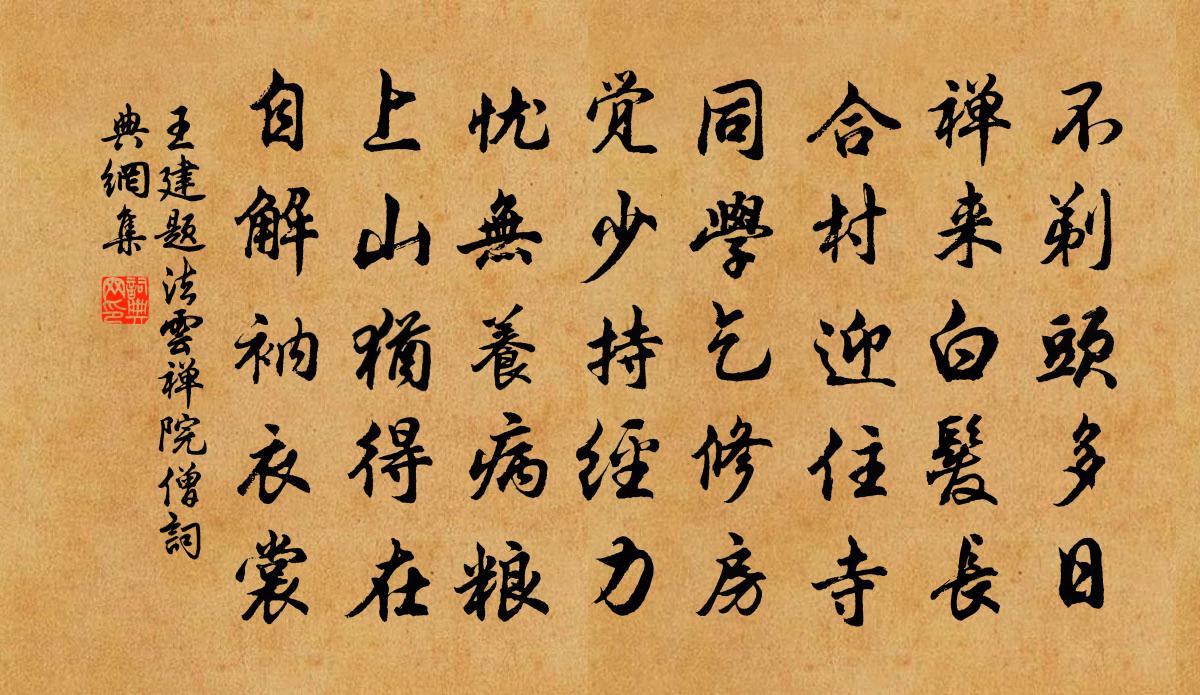 不剃頭多日
禅来白髮長
合村迎住寺
同學乞修房
觉少持經力
忧無養病粮
上山猶得在
自解衲衣裳
王建題法雲禅院僧詞
典網集
詞典
网印